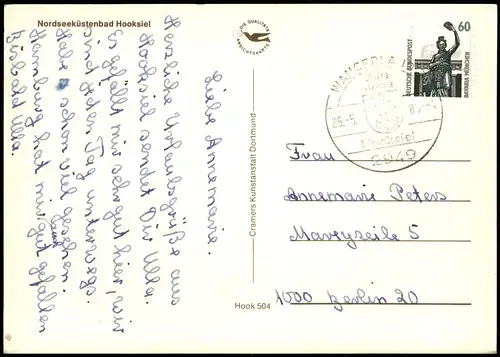 Nordseeküstenbad Hooksiel
DIE QUALITÄTS
ANSICHTSKARTE
Liebe Annemarie.
Herzliche Urlaubsgrüße aus
Hooksiel sendet Dir Ulla.
Es gefällt mir sehr gut hier, wir
sind jeden Tag unterwegs.
Habe schon viel gesehen
Hamburg hat mir gut gefallen
Bis bald Ulla.
Cramers Kunstanstalt Dortmund
Hook 504
60
DEUTSCHE BUNDESPOST
BAVARIA MÜNCHEN
WANGERLAND
Hooksiel
2949
Frau
Annemarie Peters
Mareyzeile 5
1000 Berlin 20